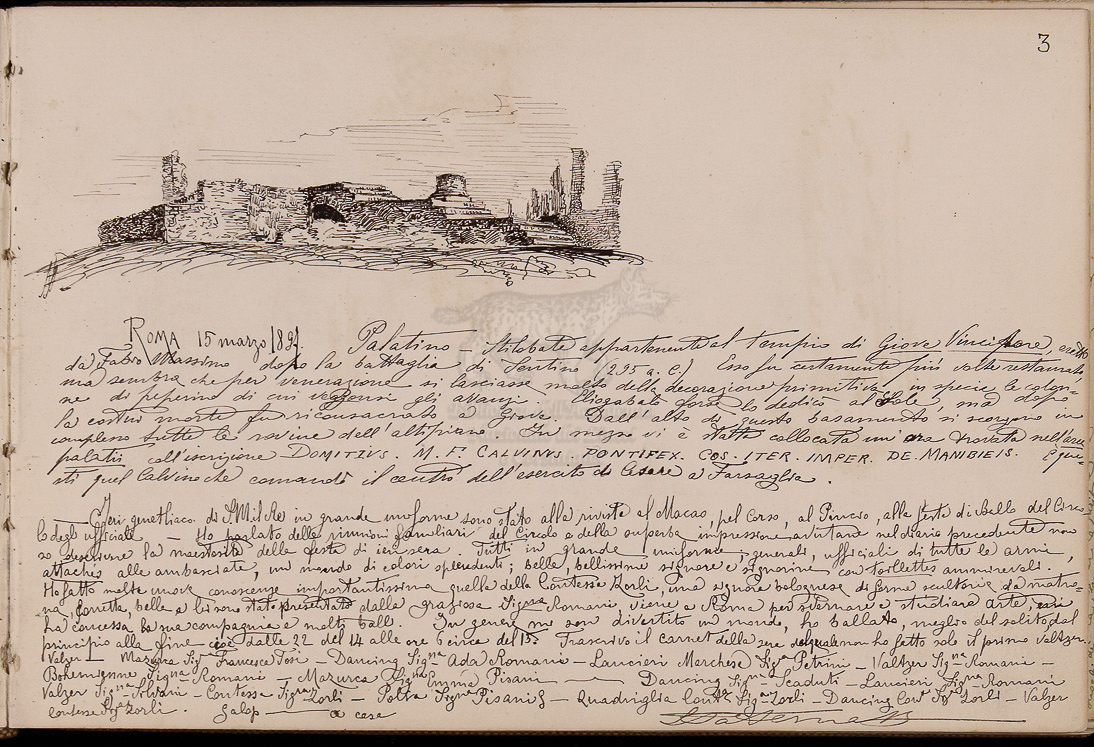 3
ROMA 15 marzo 189 Palatino – Stilobate appartenente al tempio di Giove Vincitore eretto
da Fabio Massimo dopo la battaglia di Sentino (295 a. C.) Esso fu certamente più volte restaurato
ma sembra che per venerazione si lasciasse molto della decorazione primitiva, in specie le colon-
ne di peperino di cui veggonsi gli avanzi. Eliogabalo forse lo dedicò al Sole, ma dopo
la costui morte fu riconsacrato a Giove. Dall'alto di questo basamento si scorgono in
complesso tutte le rovine dell'altipiano. In mezzo vi è stata collocata un'ara trovata nell'area
palatii coll'iscrizione DOMITIVS. M. F. CALVINVS PONTIFEX. COS. ITER. IMPER. DE. MANIBIEIS. È que-
sti quel Calvino che comandò il centro dell'esercito di Cesare a Farsaglia.
Ieri genetliaco di S. M. il Re in grande uniforme sono stato alla rivista al Macao, pel Corso, al Pincio, alla festa di ballo del Circo-
lo degli ufficiali. – Ho parlato delle riunioni familiari del Circolo e della superba impressione avutane nel diario precedente non
so descrivere la maestosità della festa di ieri sera. Tutti in grande uniforme, generali, ufficiali di tutte le armi,
attachés alle ambasciate, un mondo di colori splendenti; belle, bellissime signore e signorine con toillettes ammirevoli.
Ho fatto molte nuove conoscenze importantissima quella della Contessa Zorli, una signora bolognese di forme scultorie da matro-
na, foretta, bella a cui sono stato presentato dalla graziosa Sig.na Romani, viene a Roma per svernare e studiare arte,
ha concessa la sua compagnia e molti balli. In genere mi son divertito un mondo, ho ballato, meglio del solito, dal
principio alla fine cioè dalle 22 del 14 alle ore 6 circa del 15. Trascrivo il carnet della sera del quale non ho fatto solo il primo Valtzer.
Valzer – Mazurca Sig. Francesco Tosi – Dancing Sig.na Ada Romani – Lancieri Marchesa Sig.a Petrini – Valtzer Sig.na Romani –
Bohemienne Sig.na Romani – Mazurca Sig.na Emma Pisani – Dancing Sig.na Scaduti – Lancieri Sig.na Romani
Valzer Sig.na Silvani – Contessa Sig.ra Zorli – Polka Sig.na Pisani – Quadriglia Cont. Sig.a Zorli – Dancing Cont. Sig. Zorli – Valzer
Contessa Sig.a Zorli. Galop – a casa